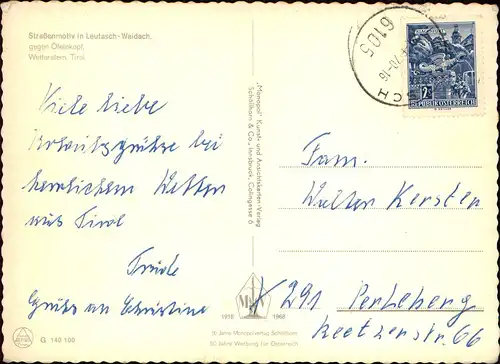 Straßenmotiv in Leutasch-Weidach,
gegen Öfelekopf,
Wetterstein, Tirol
Viele liebe
Urlaubsgrüße bei
herrlichem Wetter
aus Tirol
Trude
Grüße an Christine
G 140 100
"Monopol" Kunst- und Ansichtskarten-Verlag
Schöllhorn & Co., Innsbruck, Colingasse 6
1918 1968
50 Jahre Monopolverlag Schöllhorn
50 Jahre Werbung für Österreich
6105
REPUBLIK ÖSTERREICH
Fam.
Walter Kersten
X 291 Perleberg
Reetzerstr. 66